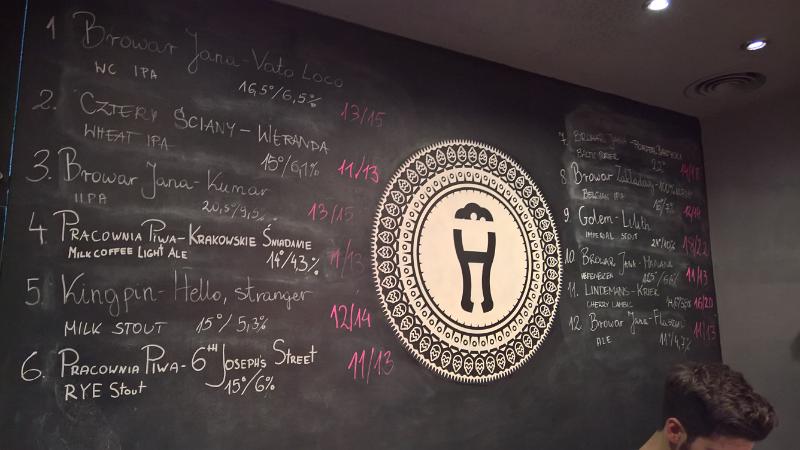 1 Browar Jana-Vato Loco
WC IPA 16,5°/6,5%
13/15
2. Cztery Ściany-Weranda
WHEAT IPA 15°/6,1% 11/13
3. Browar Jana-Kumar
IIPA 20,5°/9,5% 13/15
4 Pracownia Piwa-Krakowskie Śniadanie
Milk Coffee Light Ale 14°/4,3% 11/13
5. Kingpin-Hello, stranger
MILK STOUT 15°/5,3% 12/14
6. Pracownia Piwa-6TH Joseph's Street
RYE Stout 15°/6% 11/13
7. Browar Jana-
Baltic Porter 22°
8 Browar Zakładowy-
Belgian IPA
9 Golem-Lilith
Imperial Stout
10 Browar Jana-
11/13
11. Lindemans-Kriek
Cherry Lambic 16/20
12 Browar Jana-
ALE 11°/4,7% 11/13